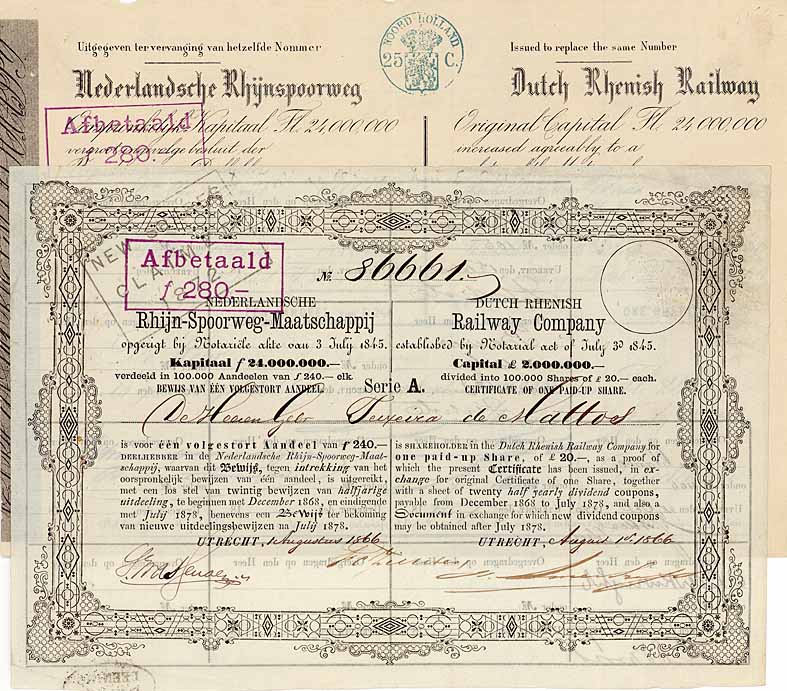 Uitgegeven ter vervanging van hetzelfde Nommer
NOORD HOLLAND
25 C.
Issued to replace the same Number
Nederlandsche Rhijnspoorweg
Dutch Rhenish Railway
Afbetaald
ƒ 280.-
Kapitaal Fl. 24,000,000
Original Capital Fl. 24,000,000
increased agreably to a
NEW
CLAIM
1872
Afbetaald
ƒ 280.-
No. 86661.
NEDERLANDSCHE
Rhijn-Spoorweg-Maatschappij
opgerigt bij Notariële akte van 3 July 1845.
Kapitaal ƒ 24.000.000.-
verdeeld in 100.000 Aandeelen van ƒ 240.- elk.
BEWIJS VAN ÉÉN VOLGESTORT AANDEEL.
DUTCH RHENISH
Railway Company
established by Notarial act of July 3D 1845.
Capital £ 2.000.000.-
divided into 100.000 Shares of £ 20.- each.
CERTIFICATE OF ONE PAID-UP SHARE.
Serie A.
De Heeren Gebr Teixeira de Mattos
is voor één volgestort Aandeel van ƒ 240.-
DEELHEBBER in de Nederlandsche Rhijn-Spoorweg-Maat-
schappij, waarvan dit Bewijs, tegen intrekking van het
oorspronkelijk bewijzen van één aandeel, is uitgereikt,
met een los stel van twintig bewijzen van halfjarige
uitdeeling, te beginnen met December 1868, en eindigende
met Julij 1878, benevens een Bewijs ter bekoming
van nieuwe uitdeelingsbewijzen na Julij 1878.
UTRECHT, 1 Augustus 1866
is SHAREHOLDER in the Dutch Rhenish Railway Company for
one paid-up Share, of £ 20.-, as a proof of
which the present Certificate has been issued, in ex-
change for original Certificate of one Share, together
with a sheet of twenty half yearly dividend coupons,
payable from December 1868 to July 1878, and also a
Document in exchange for which new dividend coupons
may be obtained after July 1878.
UTRECHT, August 1st 1866